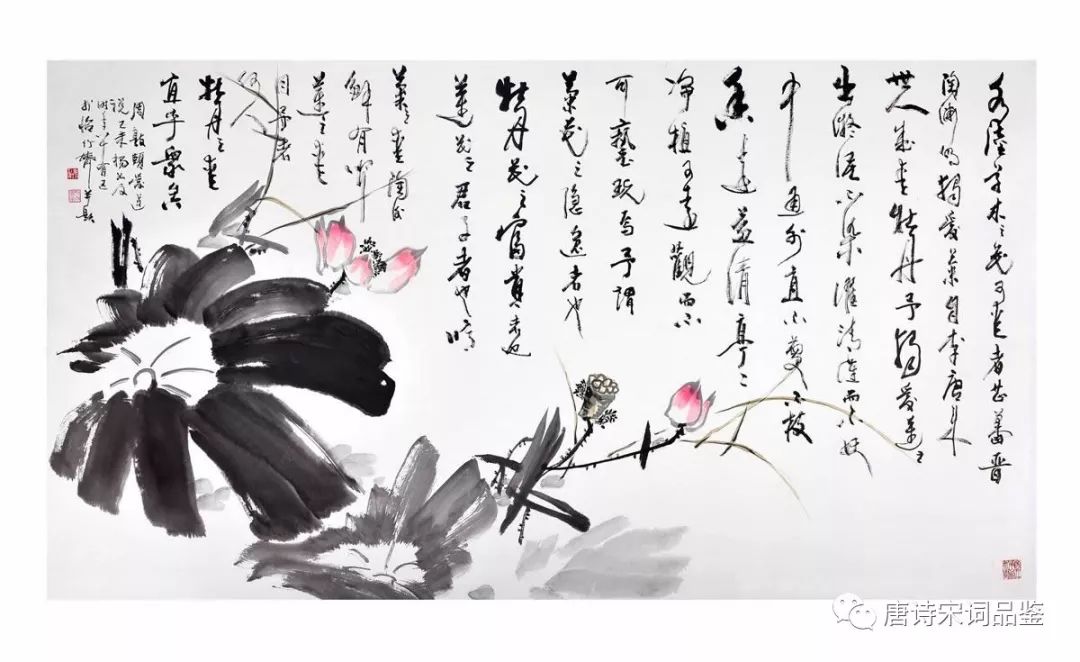 水陸草木之花可愛者甚蕃晋
陶渊明獨愛菊自李唐来
世人盛愛牡丹予獨愛蓮之
出淤泥不染濯清蓮而不妖
中通外直不蔓不枝
香遠益清亭亭
净植可遠觀而不
可褻玩焉予謂
菊花之隐逸者也
牡丹花之富貴者也
蓮花之君子者也噫
菊之愛陶后
鲜有聞
蓮之愛
同予者
何人
牡丹之愛
宜乎衆矣
周敦頤愛蓮
說乙未楊
时年八十有五
于怡竹齋
唐诗宋词品鉴